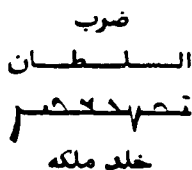 ضرب
الـسـلـطـان
خلد ملكه